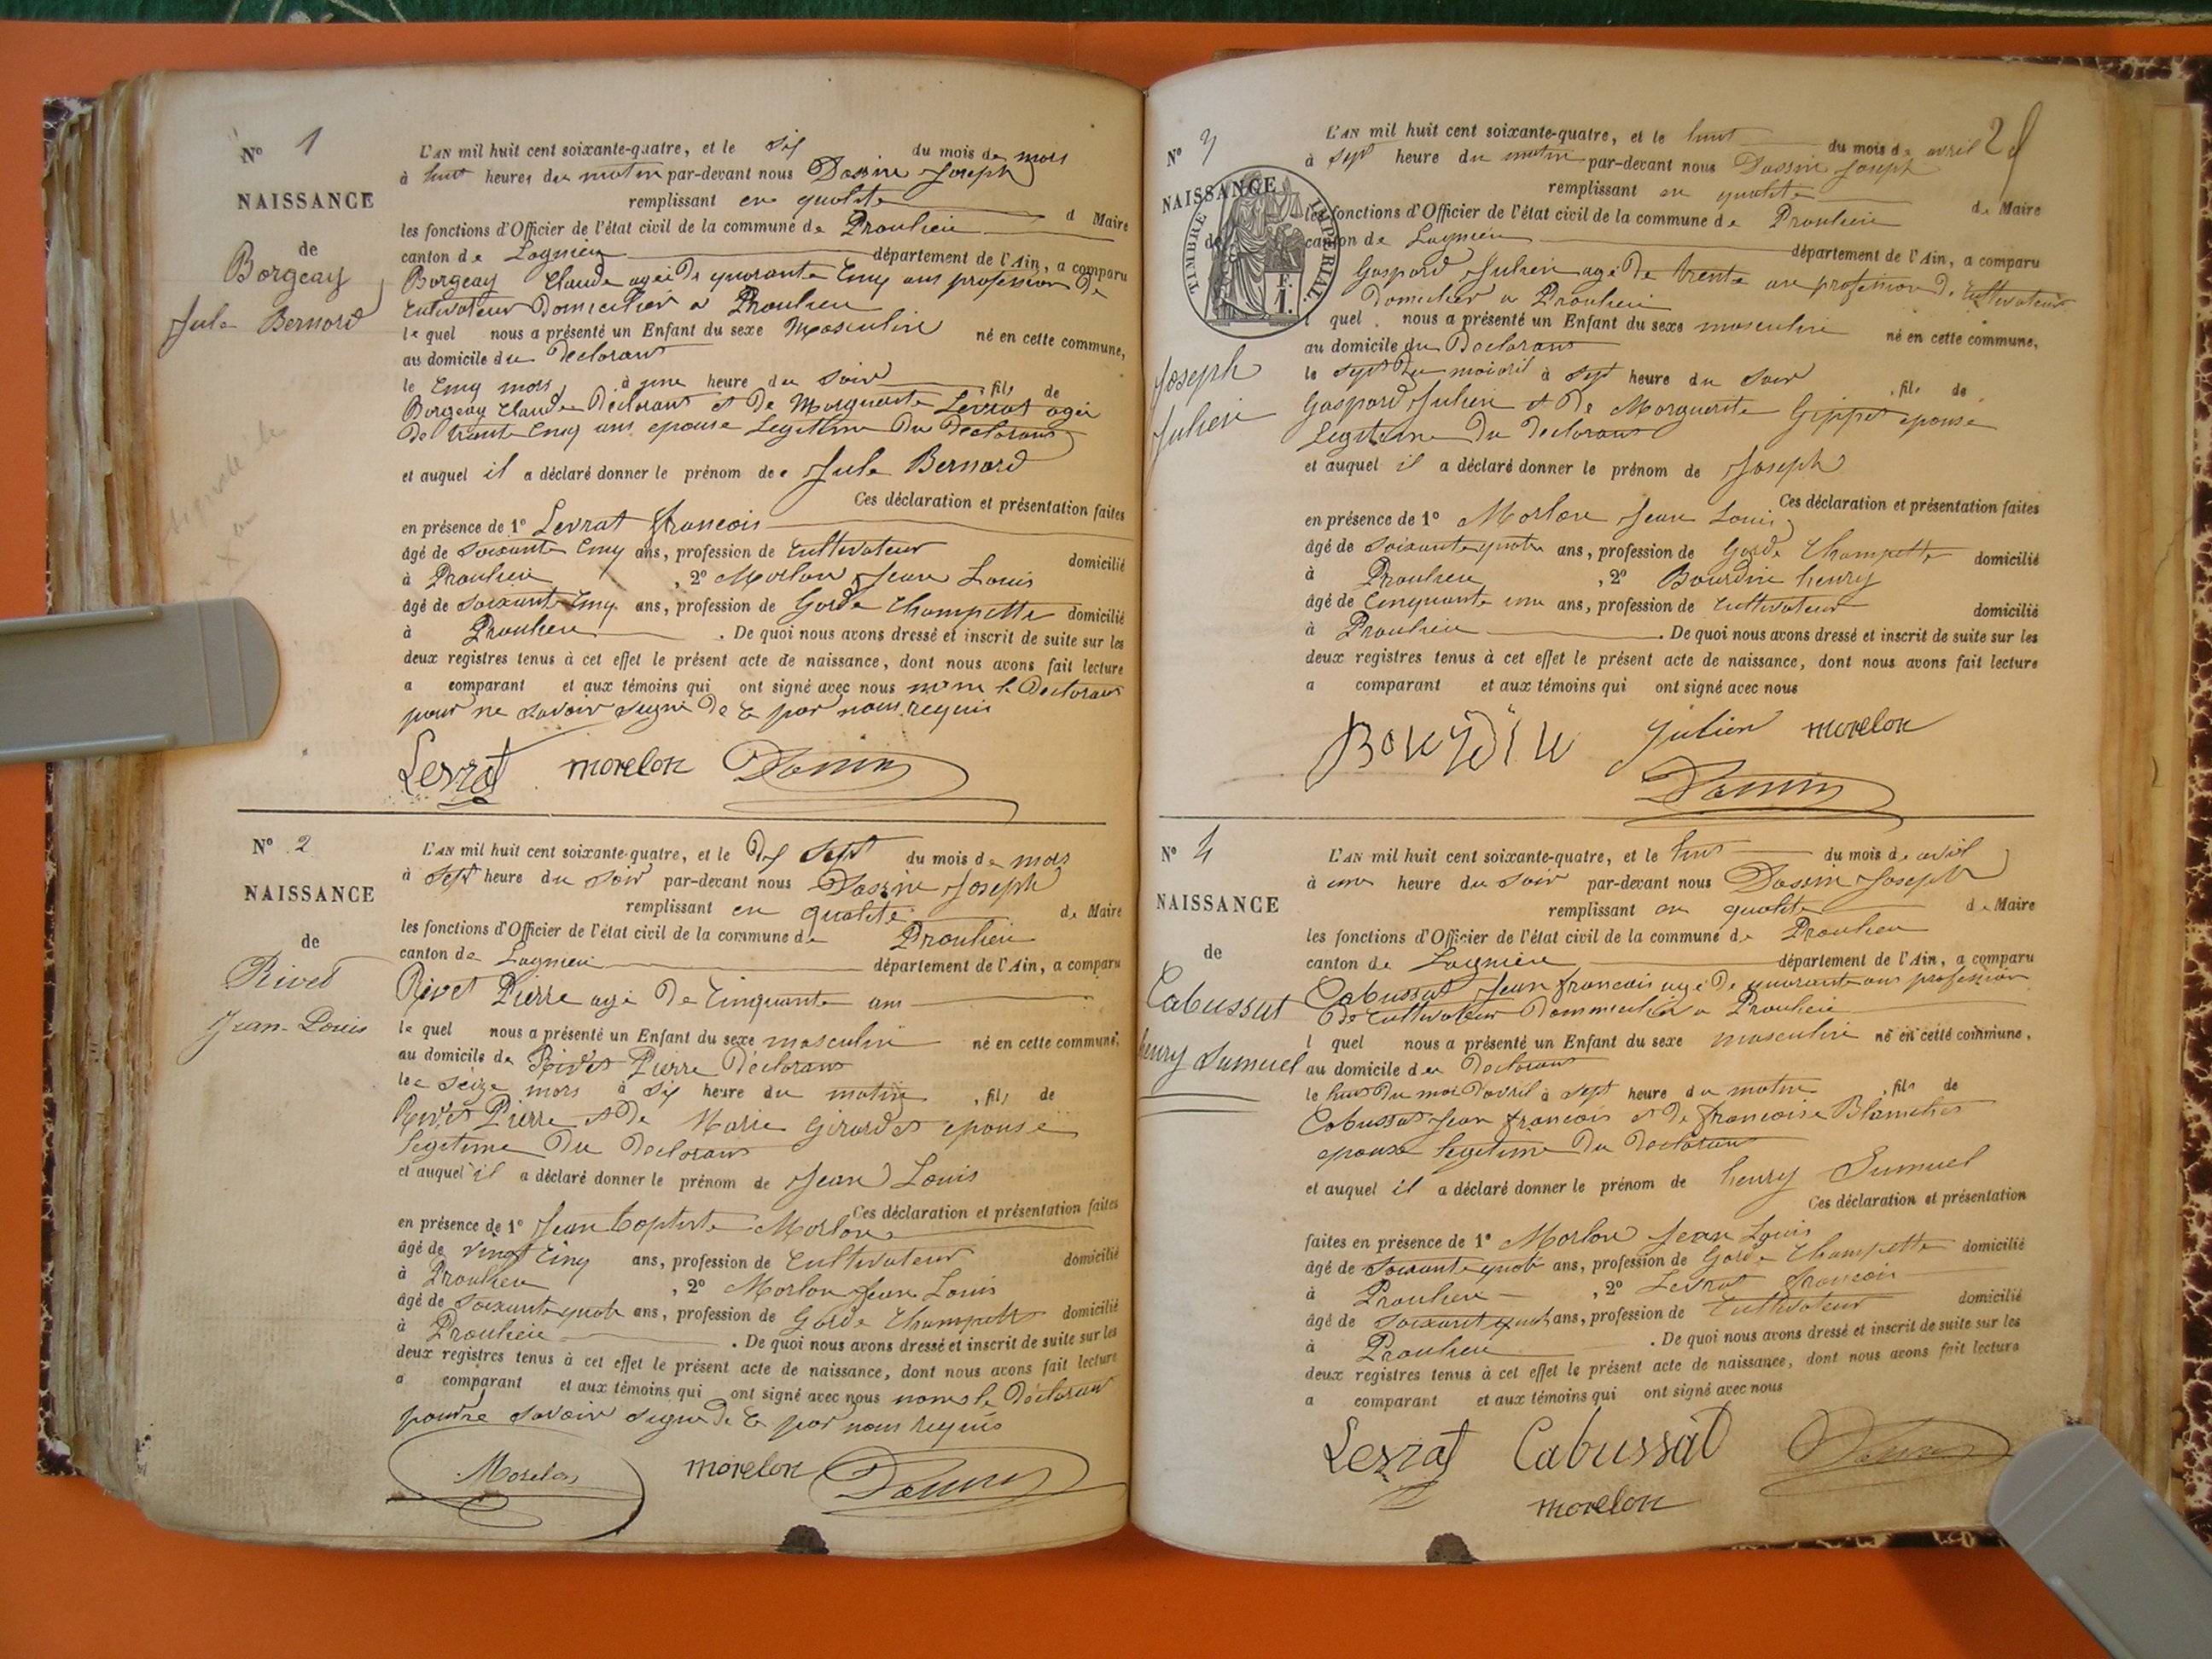 N° 1
NAISSANCE
de
Borgeay
Jule Bernard
L'AN mil huit cent soixante-quatre, et le six du mois de mars
à huit heures du matin par-devant nous Dassin Joseph
remplissant en qualité d Maire
les fonctions d'Officier de l'état civil de la commune de Proulieu
canton de Lagnieu département de l'Ain, a comparu
Borgeay Claude agée De quarante Cinq ans profession De
Cultivateur Domicilier a Proulieu
le quel nous a présenté un Enfant du sexe Masculin né en cette commune,
au domicile du Declarant
le Cinq mars à une heure du soir , fils de
Borgeay Claude Declarant et De Marguerite Levrat agée
De trente Cinq ans epouse Legitime Du Declarant
et auquel il a déclaré donner le prénom de Jule Bernard
Ces déclaration et présentation faites
en présence de 1° Levrat francois
âgé de Soixante Cinq ans, profession de Cultivateur domicilié
à Proulieu , 2° Morlon Jean Louis
âgé de Soixante Cinq ans, profession de Garde Champette domicilié
à Proulieu . De quoi nous avons dressé et inscrit de suite sur les
deux registres tenus à cet effet le présent acte de naissance, dont nous avons fait lecture
a comparant et aux témoins qui ont signé avec nous le Declarant
pour ne savoir signé De Ce par nous requis
Levrat morelon Dassin
N° 2
NAISSANCE
de
Rivet
Jean-Louis
L'AN mil huit cent soixante-quatre, et le Dix Sept du mois de mars
à Sept heure du soir par-devant nous Dassin Joseph
remplissant en qualité de Maire
les fonctions d'Officier de l'état civil de la commune de Proulieu
canton de Lagnieu département de l'Ain, a comparu
Rivet Pierre agé De Cinquante ans
le quel nous a présenté un Enfant du sexe masculin né en cette commune,
au domicile de Rivet Pierre Declarant
le seize mars à Six heure du matin , fils de
Rivet Pierre et De Marie Girardet epouse
legitime Du Declarant
et auquel il a déclaré donner le prénom de Jean Louis
Ces déclaration et présentation faites
en présence de 1° Jean Baptiste Morlon
âgé de vingt Cinq ans, profession de Cultivateur domicilié
à Proulieu , 2° Morlon Jean Louis
âgé de Soixante quatre ans, profession de Garde Champette domicilié
à Proulieu . De quoi nous avons dressé et inscrit de suite sur les
deux registres tenus à cet effet le présent acte de naissance, dont nous avons fait lecture
a comparant et aux témoins qui ont signé avec nous non le Declarant
pour ne savoir signé De Ce par nous requis
Morelon morelon Dassin
N° 3
NAISSANCE
de
TIMBRE IMPERIAL
1 F.
Joseph
Julien
L'AN mil huit cent soixante-quatre, et le huit du mois de avril
à sept heure du matin par-devant nous Dassin Joseph
remplissant en qualité de Maire
les fonctions d'Officier de l'état civil de la commune de Proulieu
canton de Lagnieu département de l'Ain, a comparu
Gaspard Julien agé De trente an profession De Cultivateur
Domicilier a Proulieu
l quel nous a présenté un Enfant du sexe masculin né en cette commune,
au domicile du Declarant
le sept Du à sept heure du soir , fils de
Gaspard Julien et De Marguerite Gippet epouse
Legitime Du Declarant
et auquel il a déclaré donner le prénom de Joseph
Ces déclaration et présentation faites
en présence de 1° Morlon Jean Louis
âgé de Soixante quatre ans, profession de Garde Champette domicilié
à Proulieu , 2° Bourdin henry
âgé de Cinquante une ans, profession de Cultivateur domicilié
à Proulieu . De quoi nous avons dressé et inscrit de suite sur les
deux registres tenus à cet effet le présent acte de naissance, dont nous avons fait lecture
a comparant et aux témoins qui ont signé avec nous
Bourdin Julien morelon
Dassin
N° 4
NAISSANCE
de
Cabussut
henry Sumuel
L'AN mil huit cent soixante-quatre, et le huit du mois de avril
à une heure du soir par-devant nous Dassin Joseph
remplissant en qualité de Maire
les fonctions d'Officier de l'état civil de la commune de Proulieu
canton de Lagnieu département de l'Ain, a comparu
Cabussat Jean francois agé De quarante ans profession
De Cultivateur Dommicilier a Proulieu
l quel nous a présenté un Enfant du sexe masculin né en cette commune,
au domicile du Declarant
le huit Du mois Davril à sept heure du matin , fils de
Cabussat Jean francois et De francoise Blanchet
epouse legitime Du Declarant
et auquel il a déclaré donner le prénom de henry Sumuel
Ces déclaration et présentation
faites en présence de 1° Morlon Jean Louis
âgé de Soixante quatre ans, profession de Garde Champette domicilié
à Proulieu , 2° Levrat francois
âgé de Soixante quatre ans, profession de Cultivateur domicilié
à Proulieu . De quoi nous avons dressé et inscrit de suite sur les
deux registres tenus à cet effet le présent acte de naissance, dont nous avons fait lecture
a comparant et aux témoins qui ont signé avec nous
Levrat Cabussat Dassin
morelon